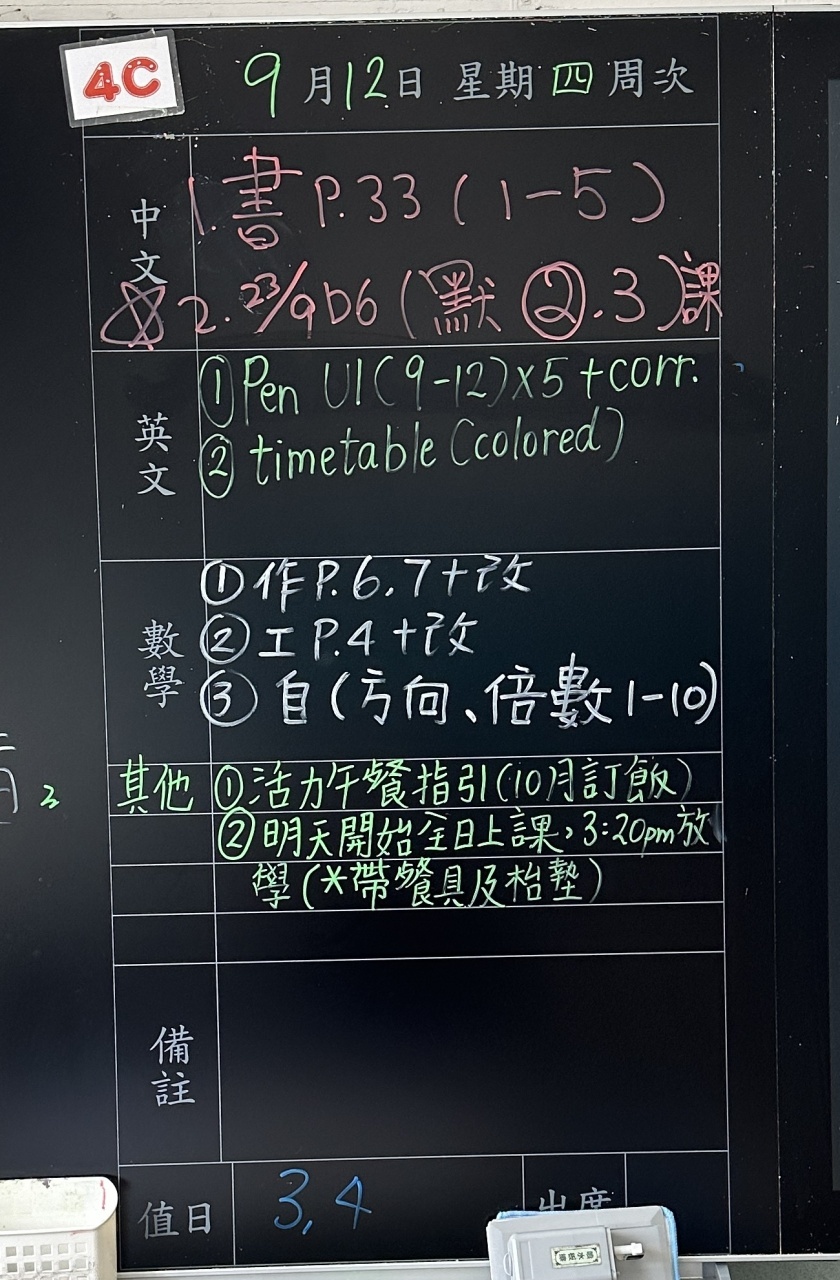 4C
9月12日 星期四 周次
中文
1. 書 P.33 (1-5)
☆ 2. 23/9 D6 (默 ②.3) 課
英文
① Pen U1 (9-12)×5 +corr.
② timetable (colored)
數學
① 作 P.6.7+改
② 工 P.4+改
③ 自(方向、倍數1-10)
其他 ① 活力午餐指引(10月訂飯)
② 明天開始全日上課,3:20pm放
學(*帶餐具及枱墊)
備註
值日 3,4 出席